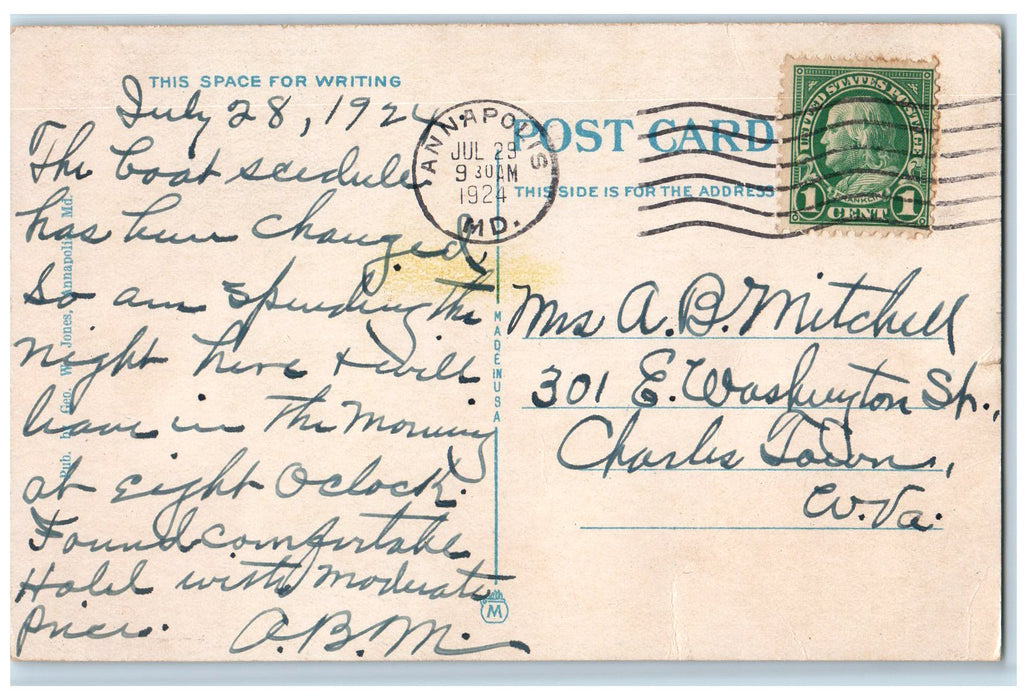 THIS SPACE FOR WRITING
July 28, 1924
The boat scedule
has been changed,
So am spending the
night here & will
leave in the morning
at eight Oclock.
Found comfortable
Hotel with moderate
prices. A.B.M.
Pub. by Geo. W. Jones, Annapolis, Md.
MADE IN USA
M
ANNAPOLIS
JUL 29
9 30 AM
1924
MD.
POST CARD
THIS SIDE IS FOR THE ADDRESS
UNITED STATES POSTAGE
FRANKLIN
1 CENT 1
Mrs A. B. Mitchell
301 E. Washington St.,
Charles Town,
W. Va.